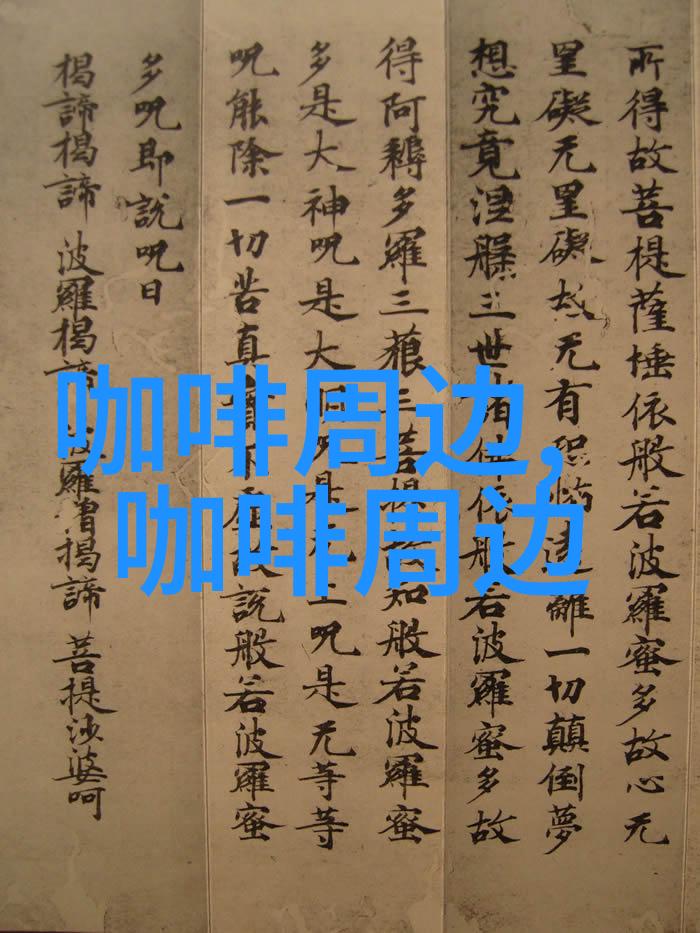 所得故菩提薩埵依般若波羅蜜多故心无
罣礙无罣礙故无有恐怖遠離一切顛倒夢
想究竟涅槃三世諸佛依般若波羅蜜多故
得阿耨多羅三藐三菩提故知般若波羅蜜
多是大神呪是大明呪是无上呪是无等等
呪能除一切苦真實不虛故說般若波羅蜜
多呪即說呪曰
揭諦揭諦 波羅揭諦 波羅僧揭諦 菩提沙婆呵
咖啡周边,
咖啡周边